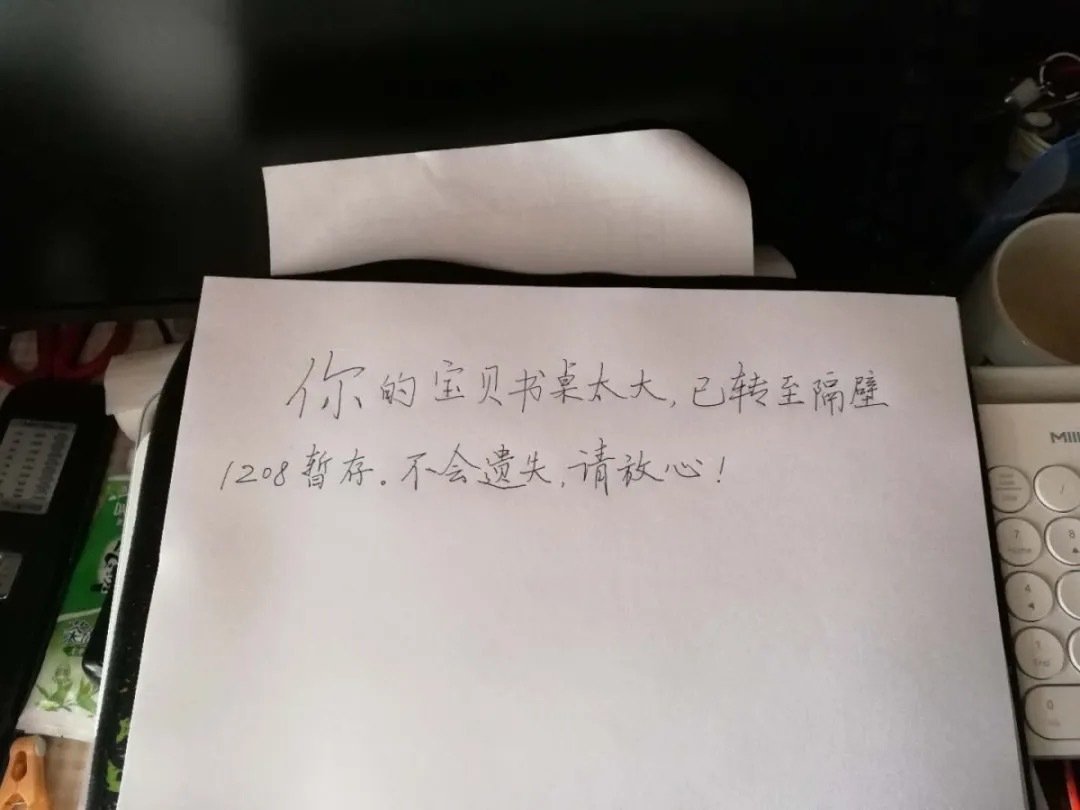 你的宝贝书桌太大,已转至隔壁
1208暂存。不会遗失,请放心!
MIII
7
Home
8
4
1
End
0